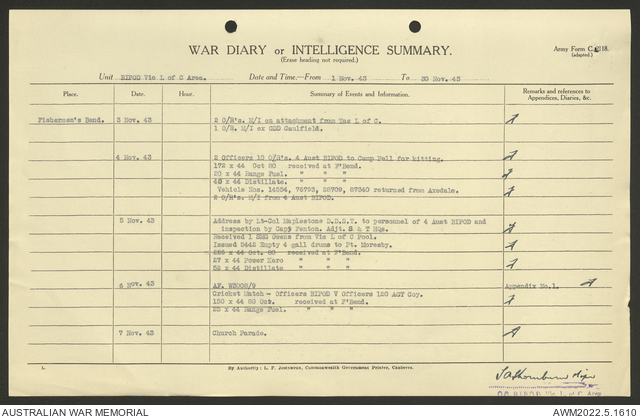 WAR DIARY or INTELLIGENCE SUMMARY.
(Erase heading not required.)
Army Form C. 2118.
(adapted.)
Unit BIPOD Vic L of C Area. Date and Time:—From 1 Nov. 43 To 30 Nov. 43
Place. Date. Hour. Summary of Events and Information. Remarks and references to Appendices, Diaries, &c.
Fishermen's Bend. 3 Nov. 43 2 O/R's. M/I on attachment from Tas L of C.
1 O/R. M/I ex GDD Caulfield.
4 Nov. 43 2 Officers 10 O/R's. 4 Aust BIPOD to Camp Pell for kitting.
172 x 44 Oct 80 received at F'Bend.
20 x 44 Range Fuel. " " "
40 x 44 Distillate. " " "
Vehicle Nos. 14834, 76793, 28709, 87340 returned from Axedale.
2 O/R's. M/I from 4 Aust BIPOD.
5 Nov. 43 Address by Lt-Col Maplestone D.D.S.T. to personnel of 4 Aust BIPOD and
inspection by Capt Fenton. Adjt. S & T HQs.
Received 1 SMG Owens from Vic L of C Pool.
Issued 5442 Empty 4 gall drums to Pt. Moresby.
x 44 Oct. 80 received at F'Bend.
27 x 44 Power Karo " " "
52 x 44 Distillate " " "
6 Nov. 43 AF. W3008/9 Appendix No.1.
Cricket Match - Officers BIPOD V Officers 120 AGT Coy.
150 x 44 80 Oct. received at F'Bend.
25 x 44 Range Fuel. " " "
7 Nov. 43 Church Parade.
By Authority: L. F. Johnston, Commonwealth Government Printer, Canberra.
OC BIPOD Vic L of C Area
AUSTRALIAN WAR MEMORIAL
AWM2022.5.1610